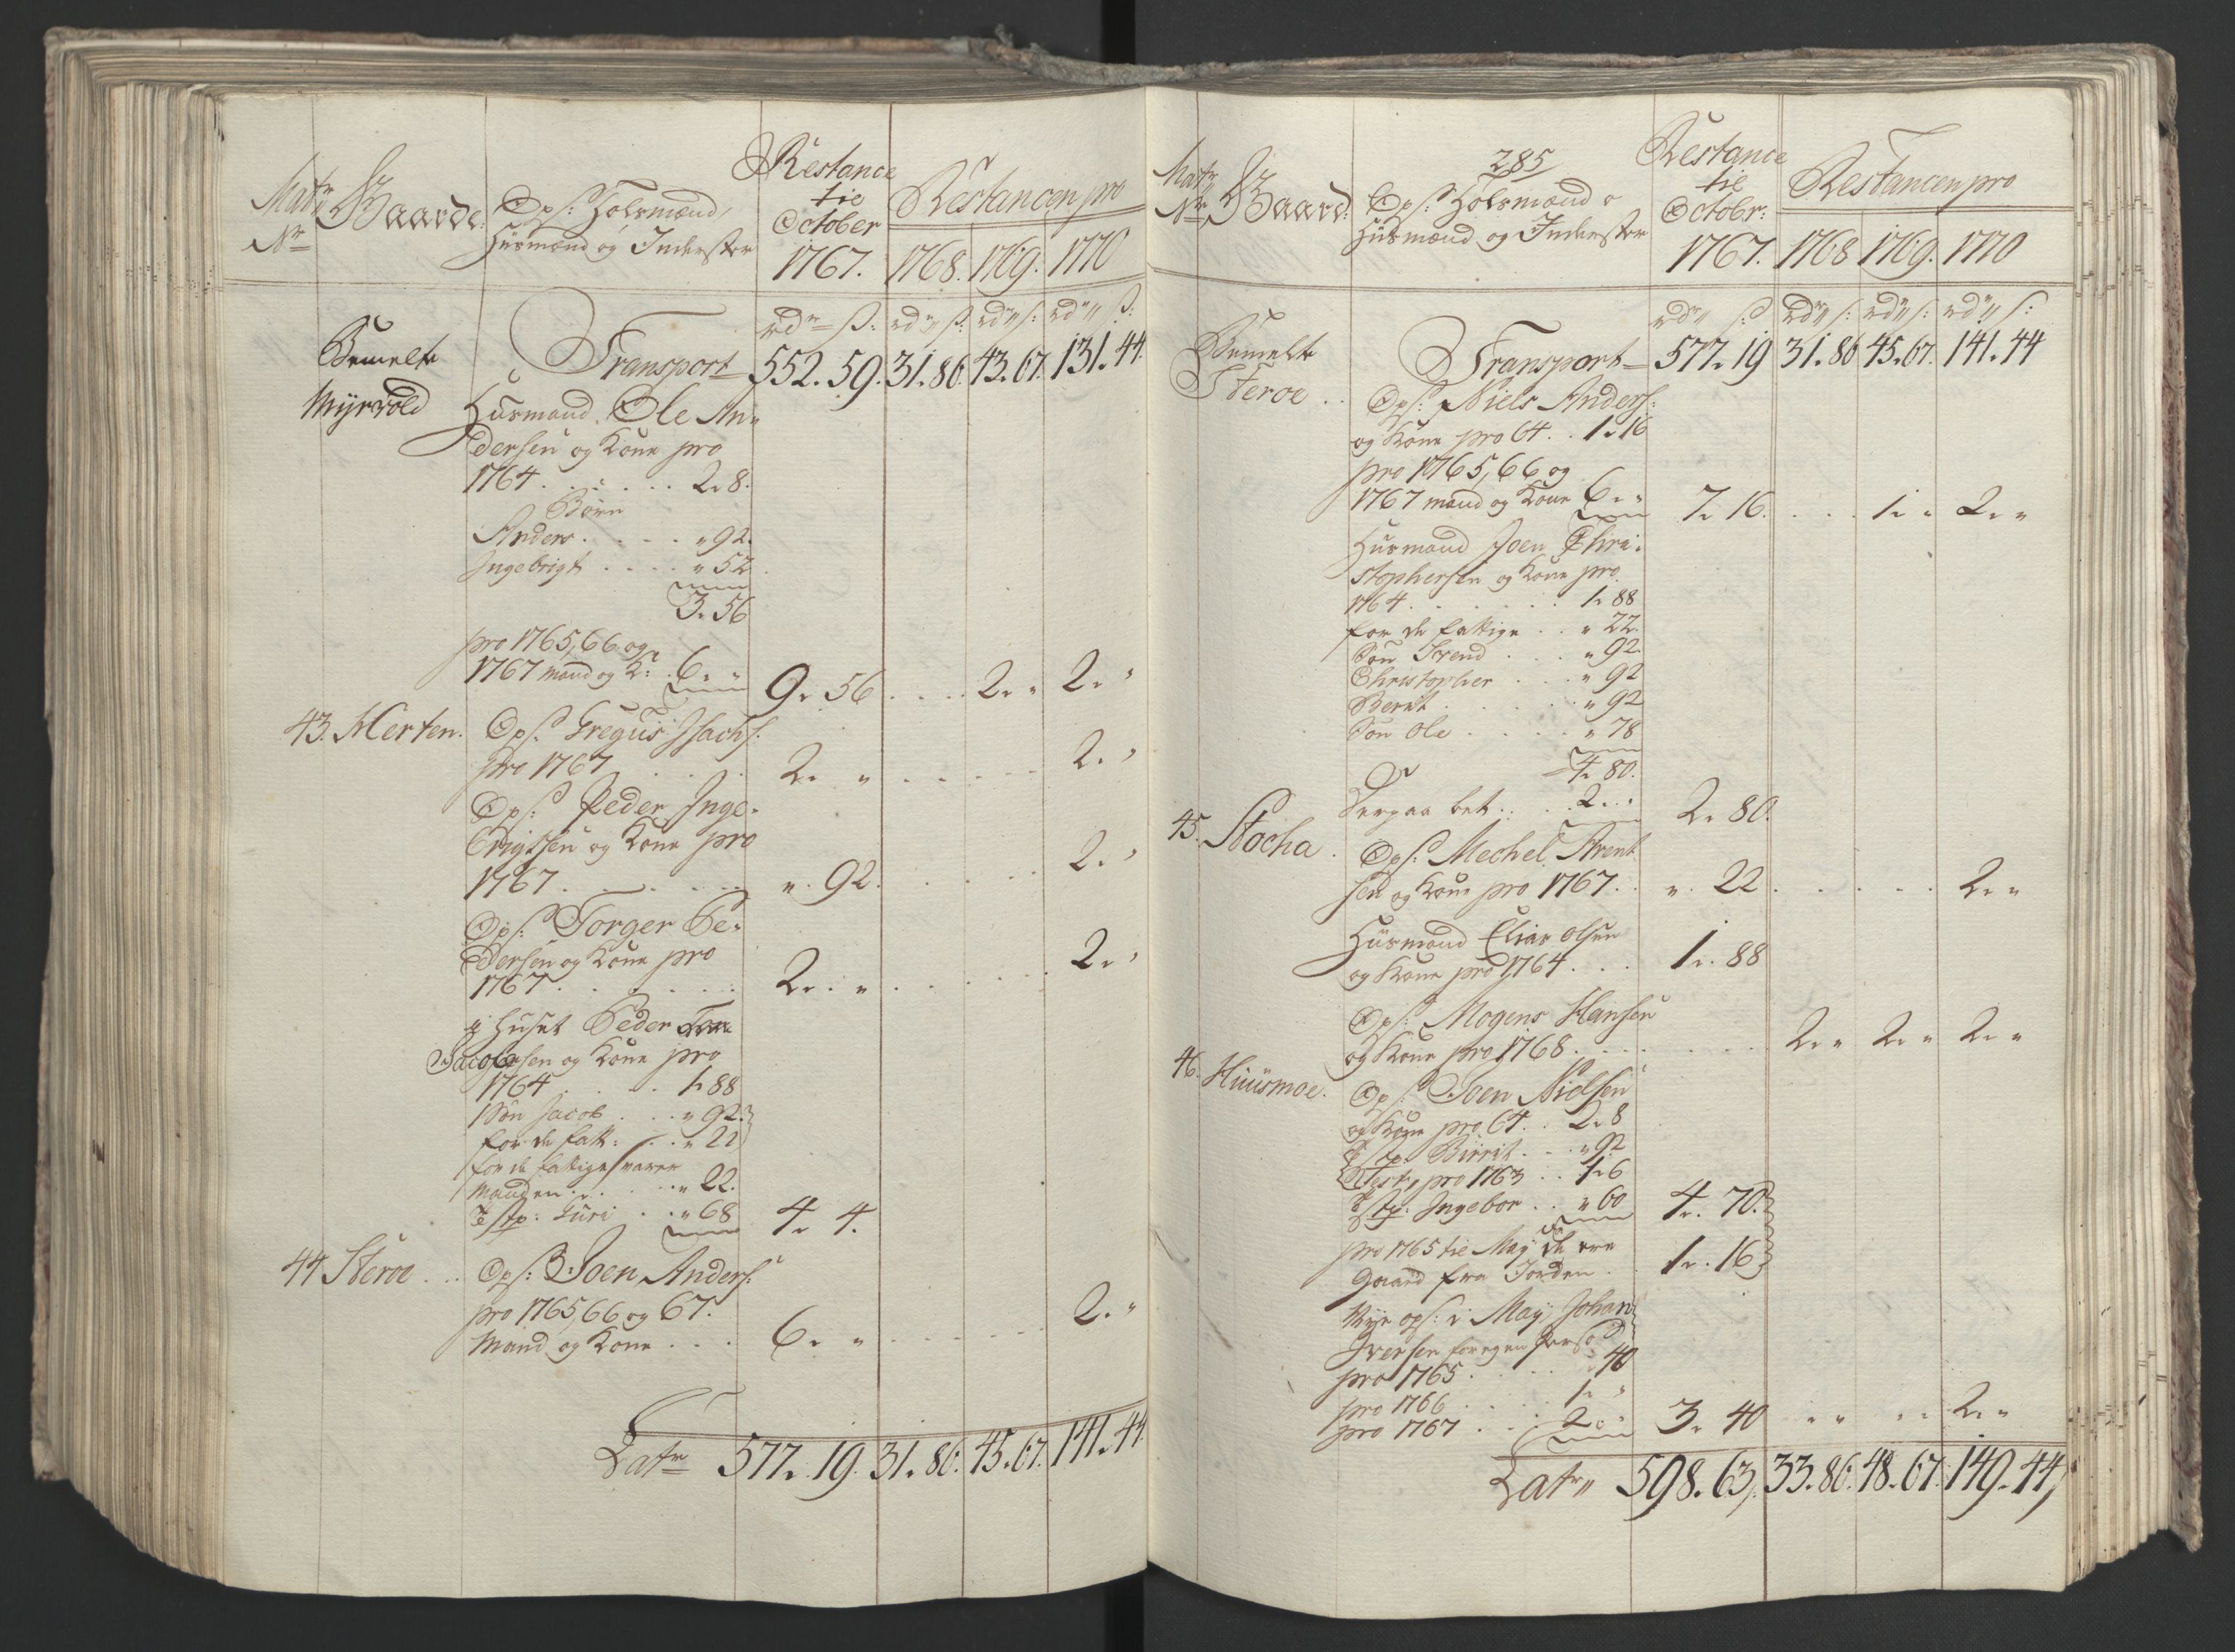 Matr
Nr
Gaarde
Ops: Folkmænd,
Huusmænd og Inderster
Restance
til
October
1767.
Restancen pro
1768. 1769. 1770
rdr ß: rdr ß: rdr ß: rdr ß:
Bemelte
Myrvold
Transport 552. 59. 31. 86. 43. 67. 131. 44.
Husmand Ole An-
dersen og Kone pro
1764 . . . . . . 2. 8.
Børn
Anders . . . . „ 92.
Ingebrigt . . . . „ 52.
3. 56
pro 1765, 66 og
1767 mand og K: . 6. „ 9. 56 . . . . 2. „ 2. „
43. Merten. Ops: Gregus Isachs:
pro 1767 . . . . 2. „ . . . . . . 2. „
Ops: Peder Inge-
brigtsen og Kone pro
1767 . . . . . . „. 92. . . . . 2. „
Ops: Torger Pe-
dersen og Kone pro
1767 . . . . . . 2. „ . . . . . 2. „
i Huset Peder
Jacobsen og Kone pro
1764 . . . . . 1. 88
Søn Jacob . . . „ 92.
for de fatt: . . . „ 22
for de fattige svarer
Manden . . . . . „ 22.
Tstp: Guri . . „ 68 4. 4.
44 Steroe . . Ops: Joen Anders:
pro 1765, 66 og 67.
Mand og Kone . . . 6. „ . . . . . . 2. „
Latr 577. 19. 31. 86. 45. 67. 141. 44
285
Matr
Nr
Gaard:
Ops: Folkmænd
Huusmænd og Inderster
Restance
til
Octobr:
1767.
Restancen pro
1768 1769. 1770
rdr ß rdr ß: rdr ß: rdr ß:
Bemelte
Steroe . .
Transport 577. 19 31. 86 45. 67. 141. 44
Ops: Niels Anders:
og Kone pro 64 . . 1. 16
pro 1765, 66 og
1767 mand og Kone 6. „ 7. 16. . . . 1. „ 2. „
Husmand Joen Chri-
stophersen og Kone pro
1764 . . . . . . 1. 88
for de fattige . . „ 22.
Søn Trend . . . „ 92.
Christopher . . . „ 92
Bernt . . . . . „ 92
Søn Ole . . . . „ 78
4. 80.
Derpaa bet: . . 2. „ 2. 80.
45. Stocha . Ops: Mechel Arent
sen og Kone pro 1767 . . „. 22 . . . . . . 2. „
Husmand Elias Olsen
og Kone pro 1764 . . . 1. 88
Ops: Mogens Hansen
og Kone pro 1768 . . . . . . . 2. „ 2. „ 2. „
46. Huusmoe. Ops: Joen Nielsen
og Kone pro 64 . . 2. 8
Tstp: Birrit . . „ 92
Rest, pro 1763 . . 1. 6
Tstp: Ingebor . . „ 60 4. 70.
pro 1765 til May da
gaaed fra Jorden . . 1. 16
Nye ops: i May Johan
Iversen for egen Person
pro 1765 . . . . . „ 40
pro 1766 . . . . 1. „
pro 1767 . . . 2. „ 3. 40 „ „ „ „ 2. „
Latr 598. 63. 33. 86. 48. 67. 149. 44,